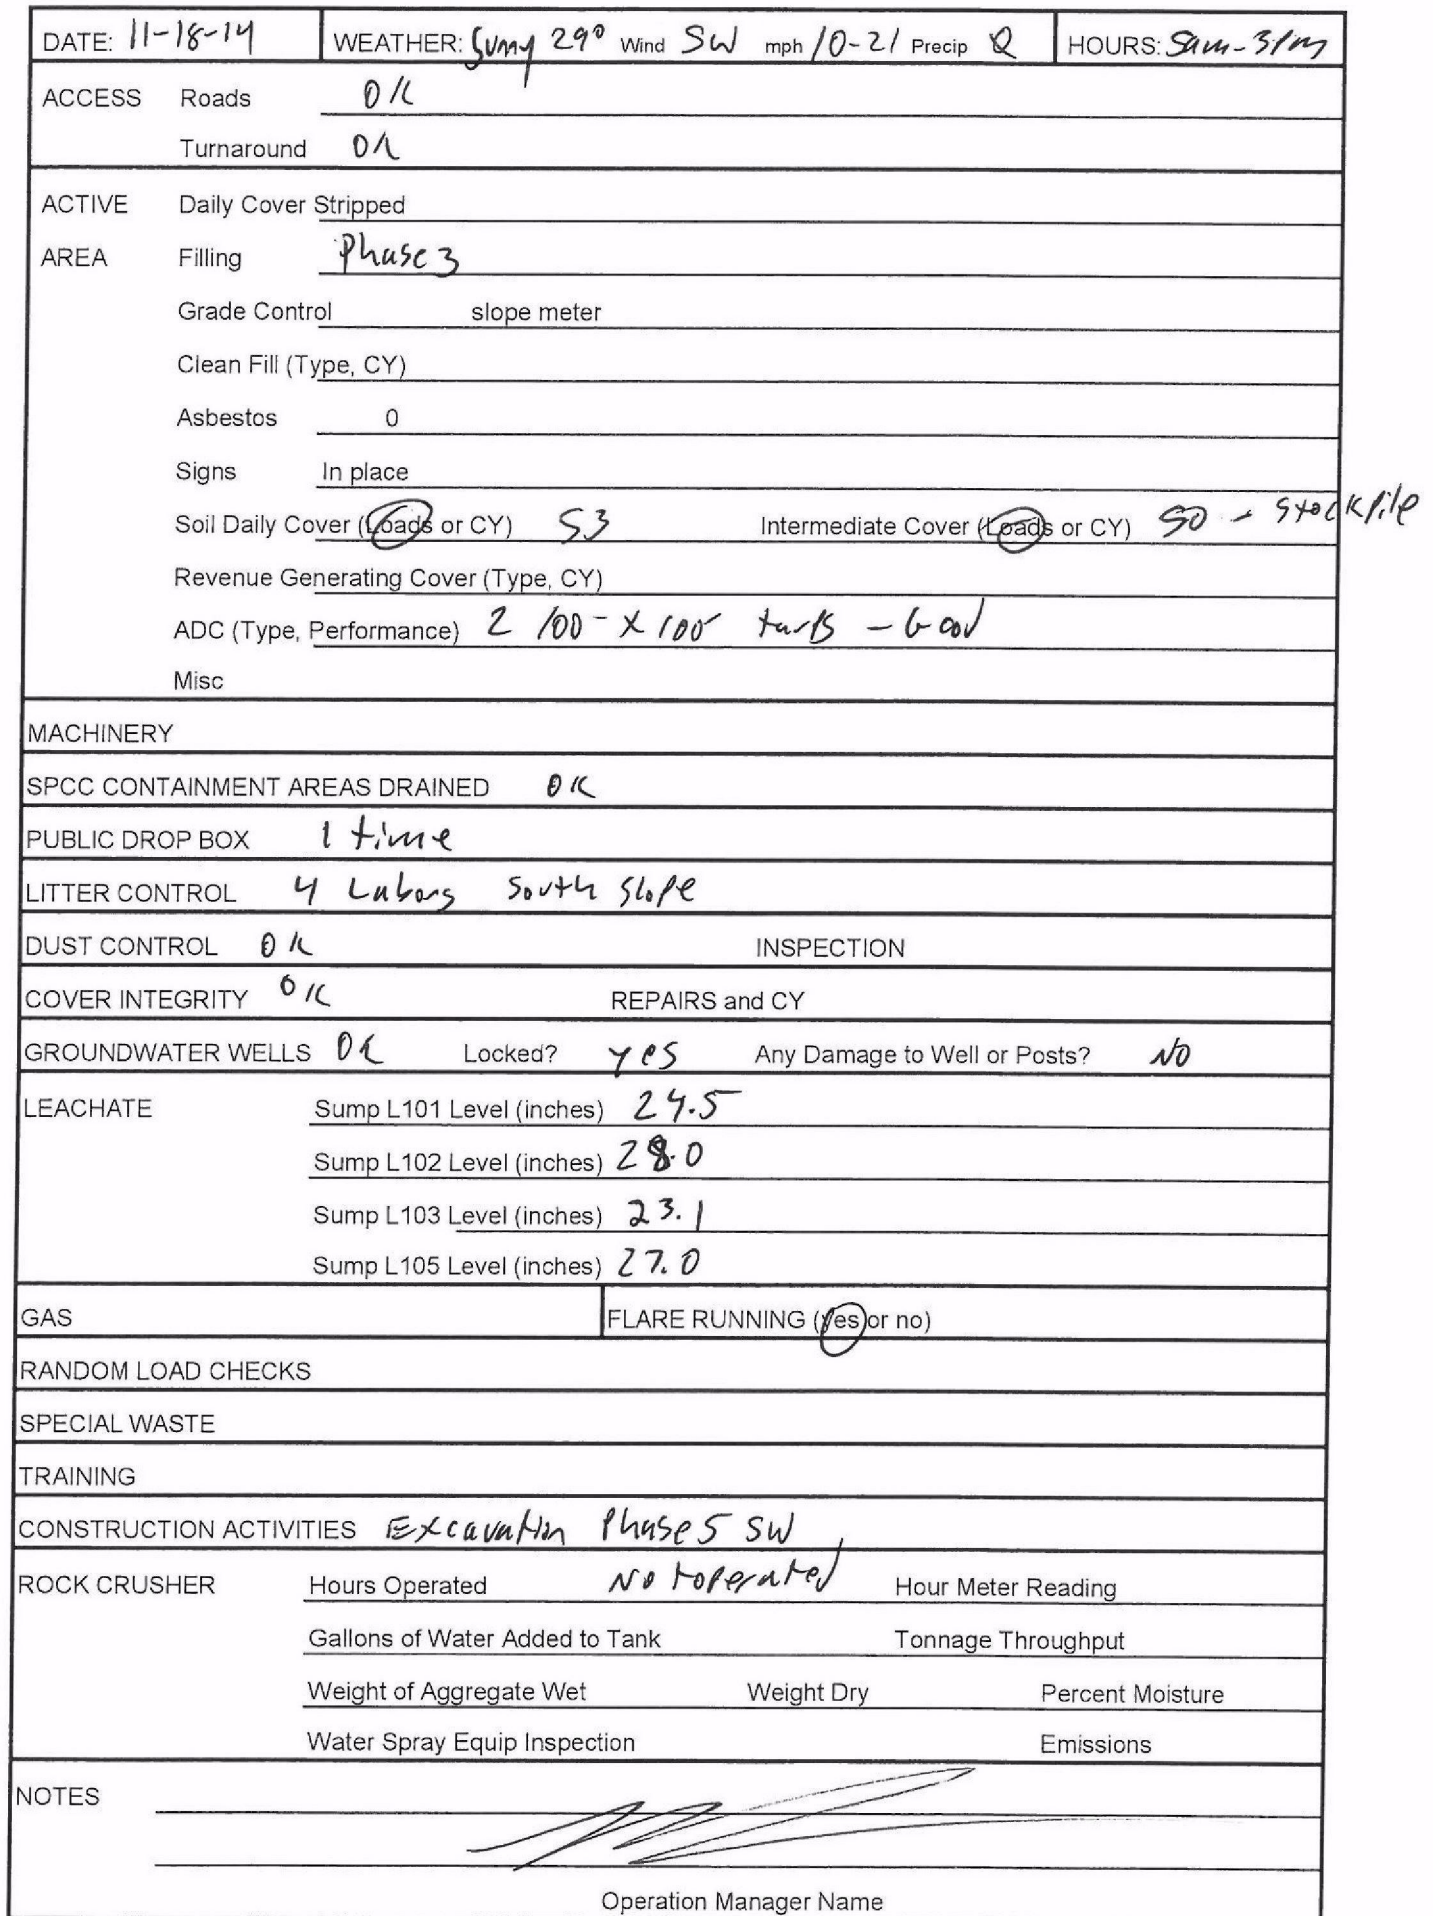 DATE: 11-18-14 WEATHER: Sunny 29° Wind SW mph 10-21 Precip 0 HOURS: 5am-3pm
ACCESS Roads OK
Turnaround OK
ACTIVE Daily Cover Stripped
AREA Filling Phase 3
Grade Control slope meter
Clean Fill (Type, CY)
Asbestos 0
Signs In place
Soil Daily Cover (Loads or CY) 53 Intermediate Cover (Loads or CY) 50 - Stockpile
Revenue Generating Cover (Type, CY)
ADC (Type, Performance) 2 100- x 100 tarps - Good
Misc
MACHINERY
SPCC CONTAINMENT AREAS DRAINED OK
PUBLIC DROP BOX 1 time
LITTER CONTROL 4 Labors South Slope
DUST CONTROL OK INSPECTION
COVER INTEGRITY OK REPAIRS and CY
GROUNDWATER WELLS OK Locked? yes Any Damage to Well or Posts? NO
LEACHATE Sump L101 Level (inches) 24.5
Sump L102 Level (inches) 28.0
Sump L103 Level (inches) 23.1
Sump L105 Level (inches) 27.0
GAS FLARE RUNNING (yes or no)
RANDOM LOAD CHECKS
SPECIAL WASTE
TRAINING
CONSTRUCTION ACTIVITIES Excavation Phase 5 SW
ROCK CRUSHER Hours Operated Not operated Hour Meter Reading
Gallons of Water Added to Tank Tonnage Throughput
Weight of Aggregate Wet Weight Dry Percent Moisture
Water Spray Equip Inspection Emissions
NOTES
Operation Manager Name